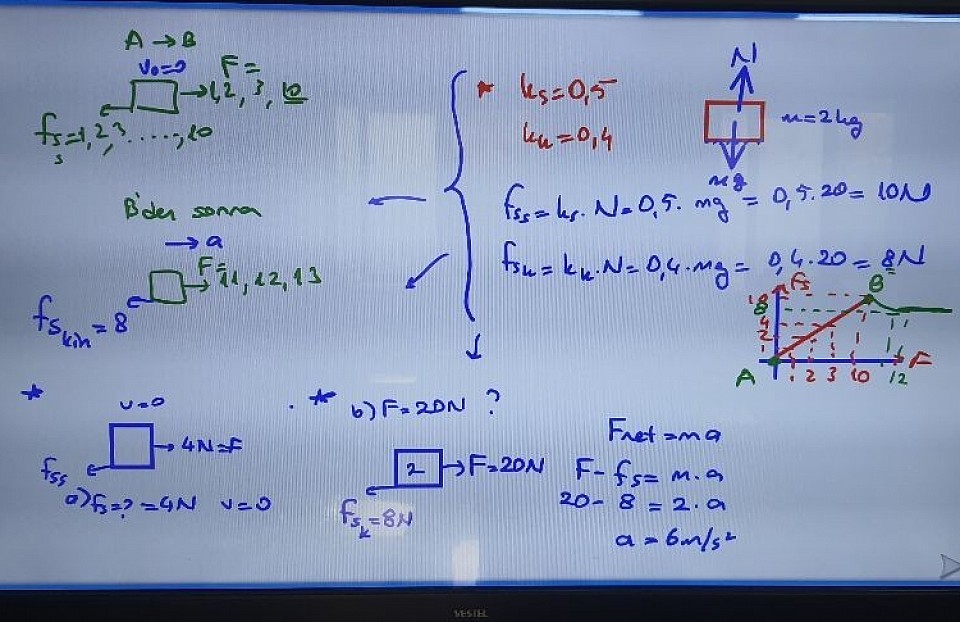 A → B
v₀=0
F=
1,2, 3, 10
fₛₛ=1,2,3,....,10
B'den sonra
→ a
F=
11,12,13
fₛₖᵢₙ=8
* kₛ=0,5
kₖ=0,4
N
m=2kg
mg
fₛₛ=kₛ.N=0,5.mg=0,5.20=10N
fₛₖ=kₖ.N=0,4.mg=0,4.20=8N
fₛ
B
10
8
4
2
A
1 2 3 10 12
F
*
v=0
4N=F
fₛₛ
a) fₛ=?=4N v=0
* b) F=20N ?
2
F=20N
fₛₖ=8N
Fnet=ma
F-fₛ=m.a
20-8=2.a
a=6m/s²
VESTEL